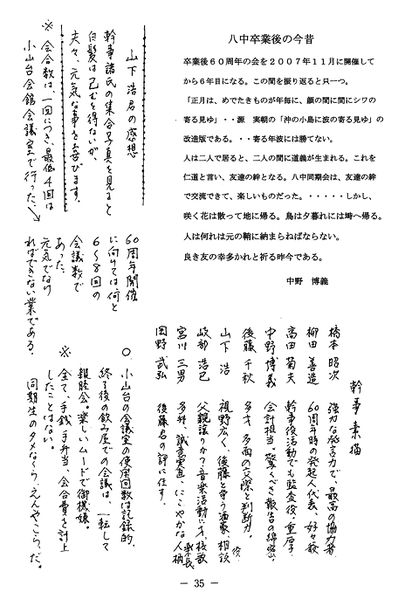 八中卒業後の今昔
卒業後60周年の会を2007年11月に開催して
から6年目になる。この間を振り返ると只一つ。
「正月は、めでたきものが年毎に、顔の間に間にシワの
寄る見ゆ」・・源 実朝の「沖の小島に波の寄る見ゆ」の
改造版である。・・寄る年波には勝てない。
人は二人で居ると、二人の間に道義が生まれる。これを
仁道と言い、友達の絆となる。八中同期会は、友達の絆
で交流できて、楽しいものだった。・・・・・しかし、
咲く花は散って地に帰る。鳥は夕暮れには塒へ帰る。
人は何れは元の鞘に納まらねばならない。
良き友の幸多かれと祈る昨今である。
中野 博義
山下浩君の感想
幹事諸氏の集合写真を見ると
白髪は已むを得ないが、
夫々、元気な事を喜びます。
※ 会合数は、一回につき、最低4回は
小山台会館会議室で行った、
60周年開催
に向けては何と
6〜8回の
会議数で
あった
元気でなの
ればできない業である。
幹事素描
橋本 昭次 強力な発言力で、最高の協力者
柳田 善造 60周年時の発起人代表、好々爺
高田 菊夫 幹事後活動でも監査後、重厚
中野 博義 会計担当。驚くべき報告の綿密
後藤 千秋 多才、多面の交際と判断力。
山下 浩 視野広く、後藤と争う酒豪、相談役
岐部 浩己 父親譲りかつ音楽活動に才、校歌
宮川 三男 多弁、誠音愛意、にこやかな人柄
岡野 武弘 後藤君の評に任す。
○ 小山台の会議室の使用回数は記録的、
終了後の飲み屋での会議は、一転して
親睦会。楽しいムードで御機嫌。
※ 全て、手銭、手弁当、会合費を計上
したことはない。
同期生のタメなら、えんやこらだ。
— 35 —